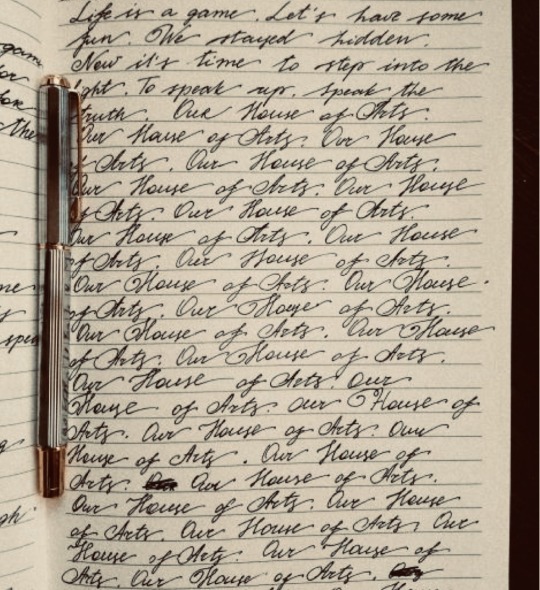 Life is a game. Let's have some
fun. We stayed hidden.
Now it's time to step into the
light. To speak up, speak the
truth. Our House of Arts.
Our House of Arts. Our House
of Arts. Our House of Arts.
Our House of Arts. Our House
of Arts. Our House of Arts.
Our House of Arts. Our House
of Arts. Our House of Arts.
Our House of Arts. Our House
of Arts. Our House of Arts.
Our House of Arts. Our House
of Arts. Our House of Arts.
Our House of Arts. Our
House of Arts. Our House of
Arts. Our House of Arts. Our
House of Arts. Our House of
Arts. Our House of Arts.
Our House of Arts. Our House
of Arts. Our House of Arts. Our
House of Arts. Our House of
Arts. Our House of Arts.